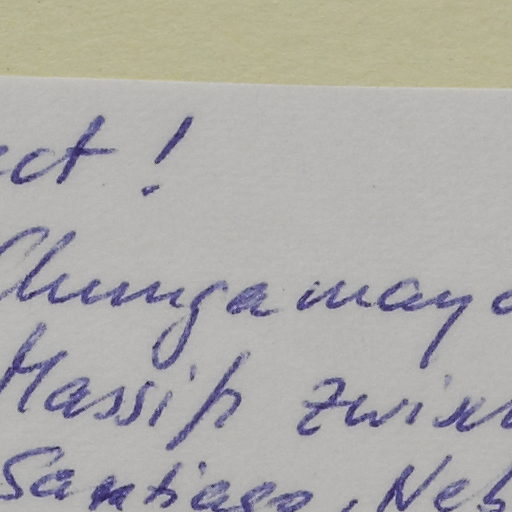 ect!
Chungamayo
Massif zwisch
Santiago, Neb